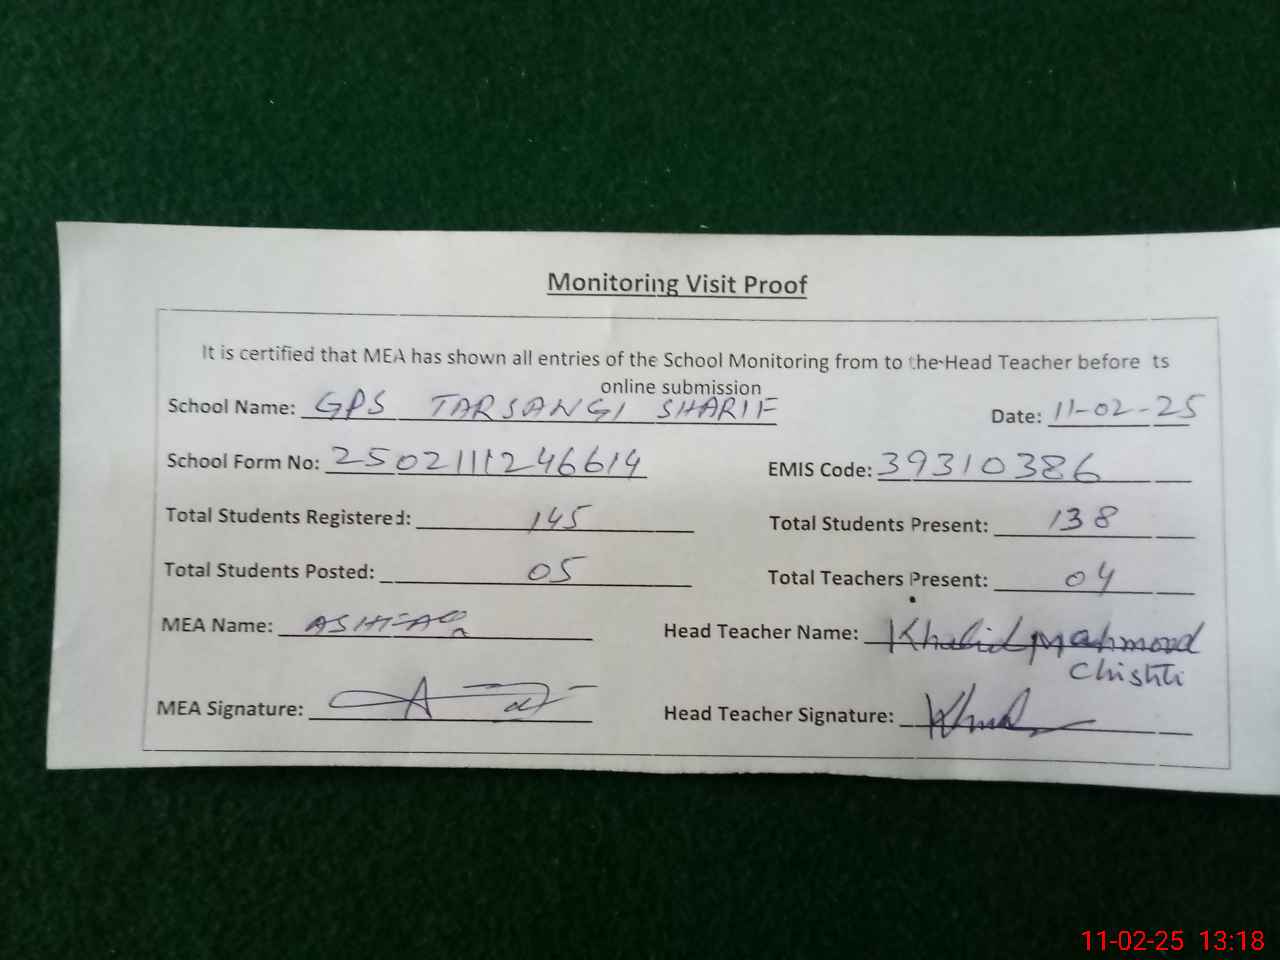 Monitoring Visit Proof
It is certified that MEA has shown all entries of the School Monitoring from to the Head Teacher before ts
online submission
School Name: GPS TARSANGI SHARIF Date: 11-02-25
School Form No: 2502111246614 EMIS Code: 39310386
Total Students Registered: 145 Total Students Present: 138
Total Students Posted: 05 Total Teachers Present: 04
MEA Name: ASHFAQ Head Teacher Name: Khalid Mahmood
Chishti
MEA Signature: Head Teacher Signature:
11-02-25 13:18